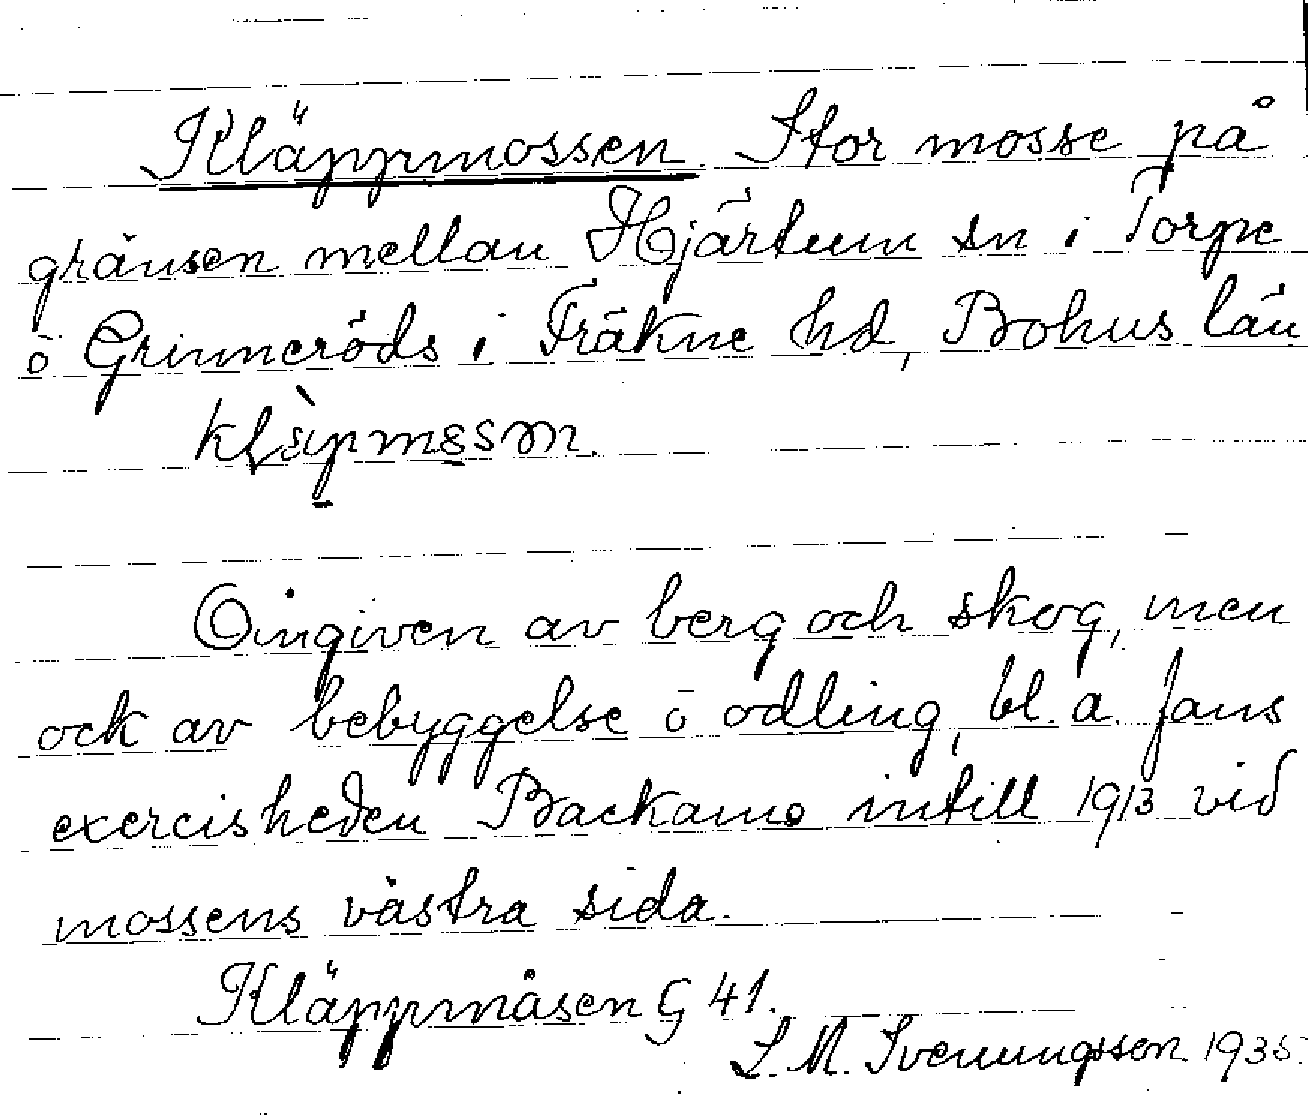 Kläppmossen. Stor mosse på
gränsen mellan Hjärtum sn i Torpe
ö Grinneröds i Fräkne hd, Bohus län
Omgiven av berg och skog, men
ock av bebyggelse ō odling, bl. a. fans
exercisheden Backamo intill 1913 vid
mossens västra sida.
Kläppmåsen G 41.
S. M. Svenungsson 1935.